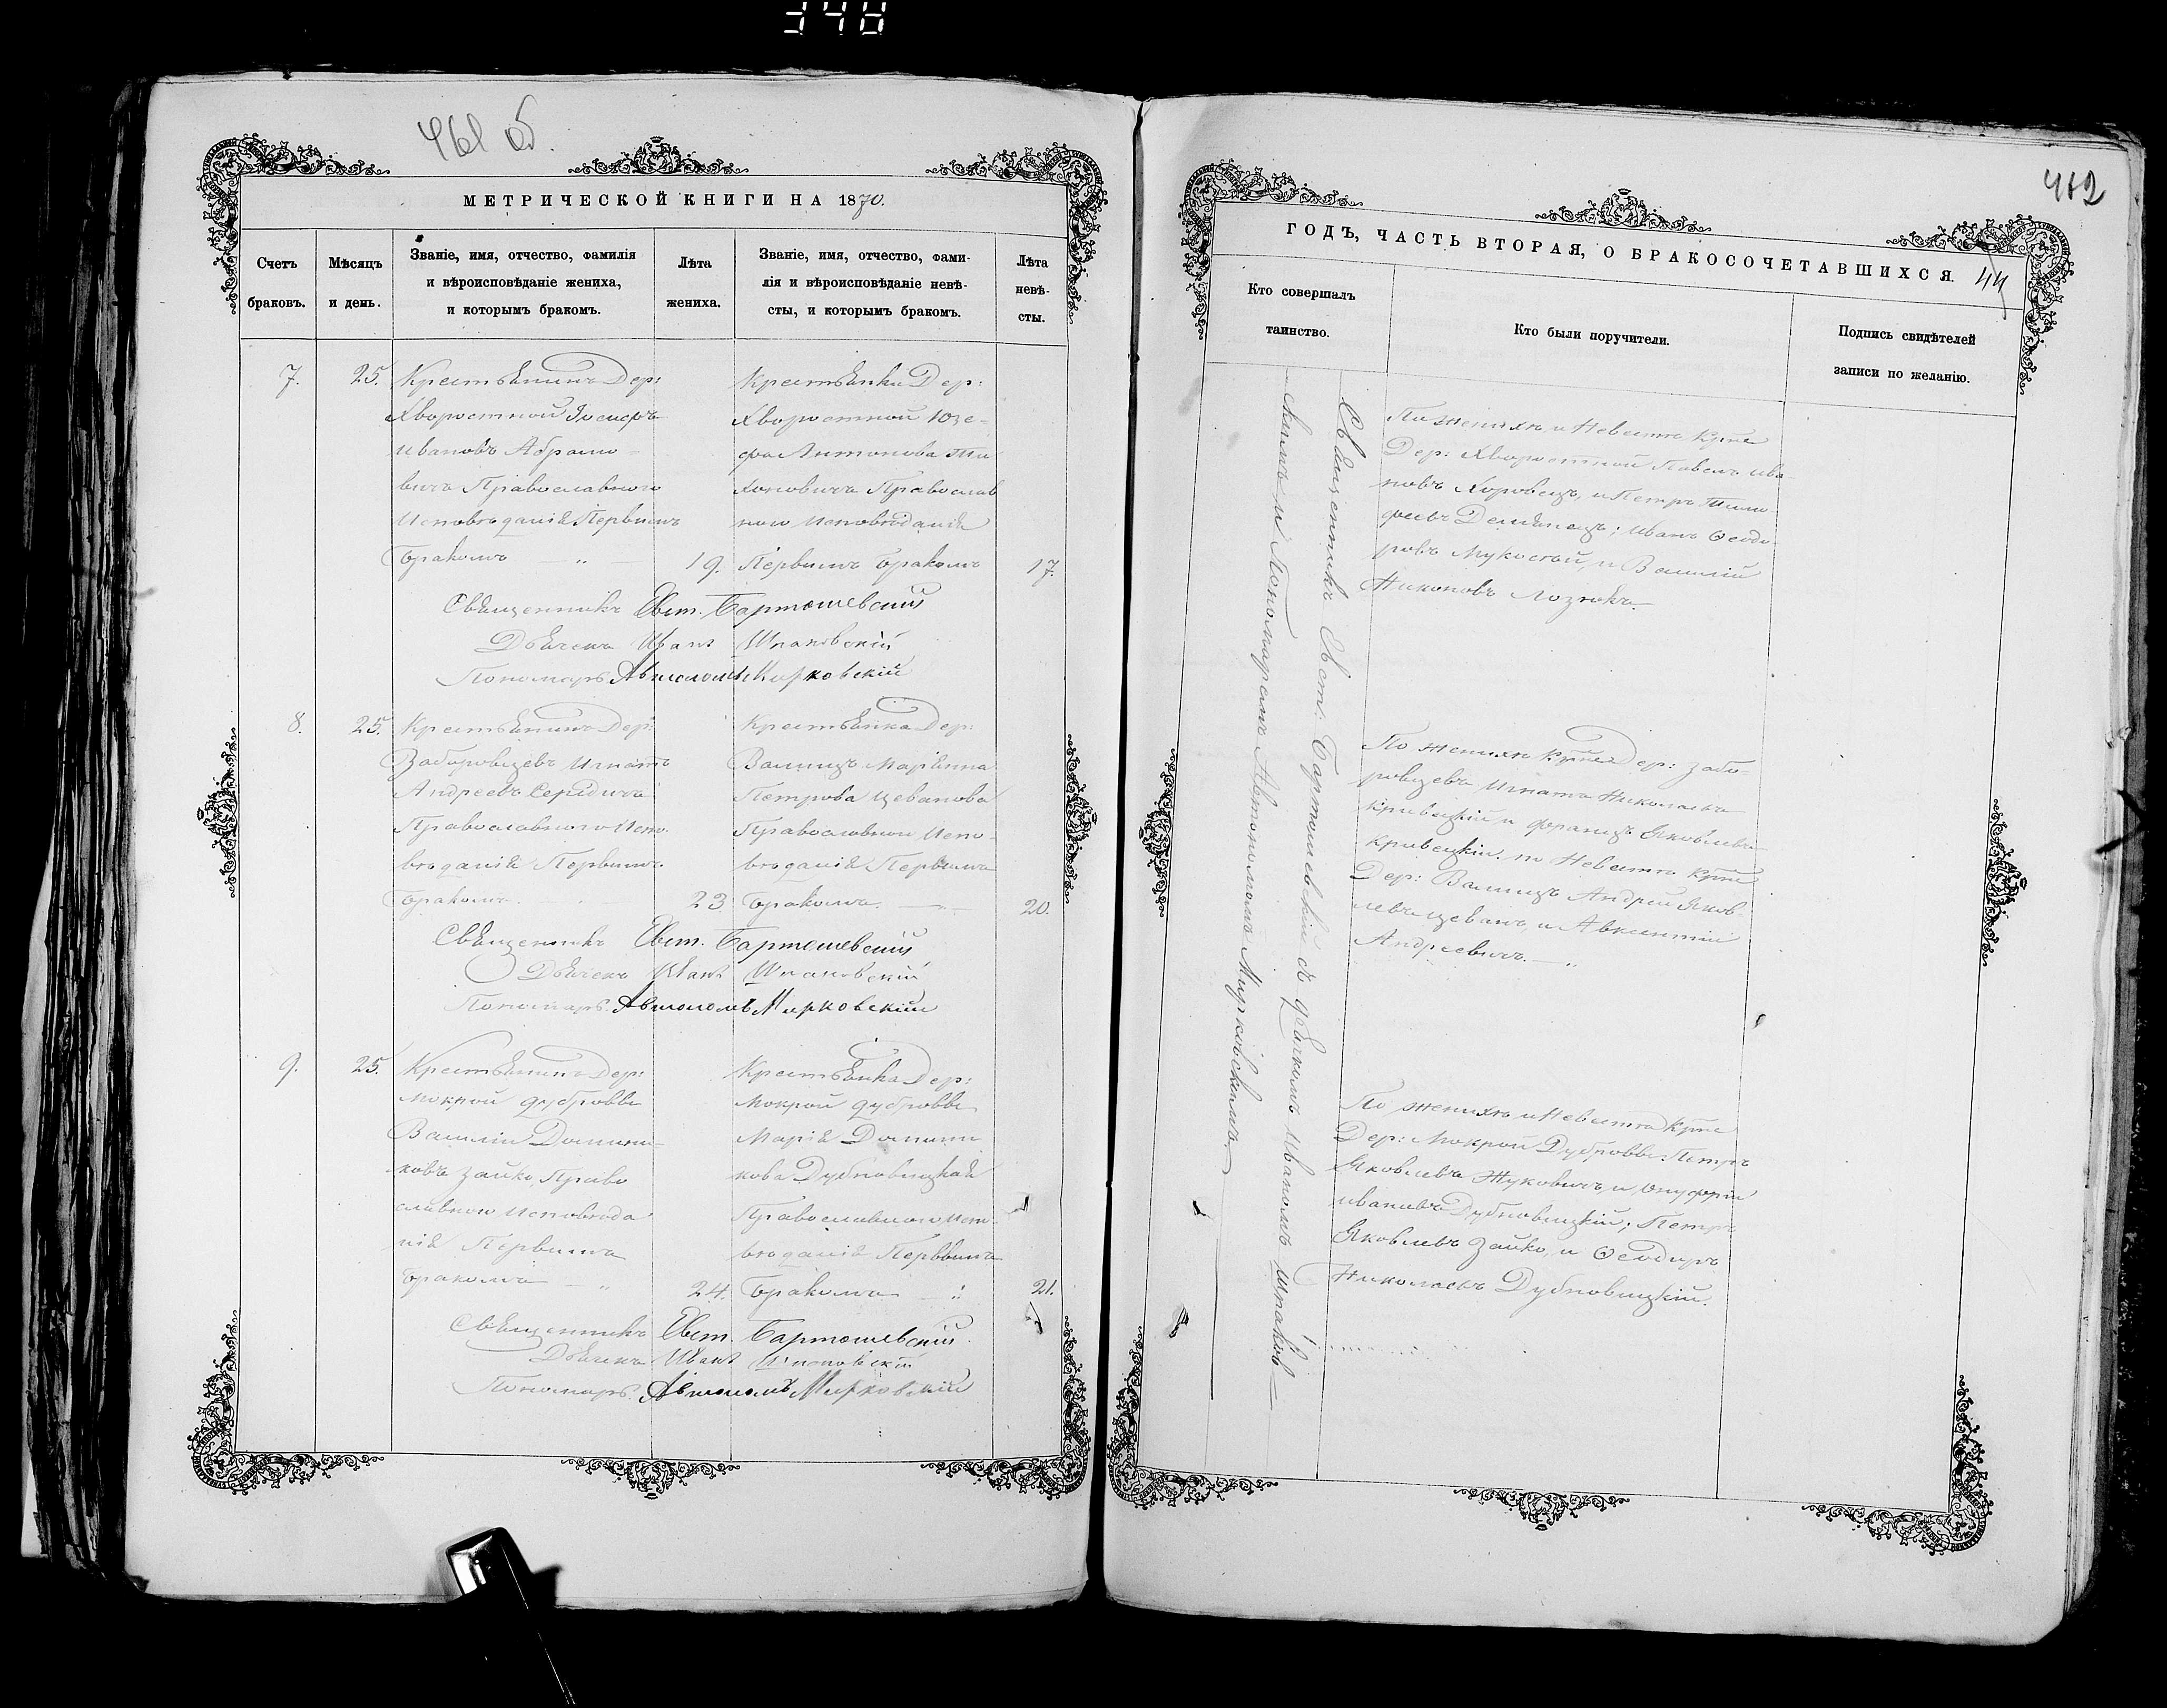 348
461 об.
МЕТРИЧЕСКОЙ КНИГИ НА 1870.
Счетъ браковъ.
Мѣсяцъ и день.
Званіе, имя, отчество, фамилія
и вѣроисповѣданіе жениха,
и которымъ бракомъ.
Лѣта
жениха.
Званіе, имя, отчество, фами-
лія и вѣроисповѣданіе невѣ-
сты, и которымъ бракомъ.
Лѣта
невѣ-
сты.
7.
25.
Крестьянинъ Дер:
Хворостной Іосифъ
Ивановъ Абрамо-
вичъ Православнаго
Исповѣданія Первымъ
бракомъ — „ —
19.
Крестьянка Дер:
Хворостной Юзе-
фа Антонова Ти
хоновича Православ
наго Исповѣданія
Первымъ бракомъ
17.
Священникъ Евст. Бартошевскій
Дьячекъ Иванъ Шпаковскій
Пономарь Автономъ Мирковскій
8.
25.
Крестьянинъ Дер:
Заборовцевъ Игнатъ
Андреевъ Середичъ
Православнаго Испо-
вѣданія Первымъ
бракомъ.
23
Крестьянка Дер:
Валищъ Марьяна
Петрова Цеванова
Православнаго Испо-
вѣданія Первымъ
бракомъ.
20.
Священникъ Евст. Бартошевскій
Дьячекъ Иванъ Шпаковскій
Пономарь Автономъ Мирковскій
9.
25.
Крестьянинъ Дер:
Мокрой дубровы
Василій Домини-
ковъ Зайко, Право
славнаго Исповѣда
нія Первымъ
бракомъ — „
24.
Крестьянка Дер:
Мокрой дубровы
Марія Домини
кова Дубновицкая
Православнаго Испо-
вѣданія Первымъ
бракомъ
21.
Священникъ Евст. Бартошевскій
Дьячекъ Иванъ Шпаковскій
Пономарь Автономъ Мирковскій
462
ГОДЪ, ЧАСТЬ ВТОРАЯ, О БРАКОСОЧЕТАВШИХСЯ.
44
Кто совершалъ
таинство.
Кто были поручители.
Подпись свидѣтелей
записи по желанію.
Священникъ Евст. Бартошевскій съ дьячкомъ Иваномъ Шпаков-
скимъ и Пономаремъ Автономомъ Мирковскимъ.
По женихѣ и Невѣстѣ Крѣне
Дер: Хворостной Павелъ Ива-
новъ Хоровецъ, и Петръ Тимо
феевъ Демянецъ; Иванъ Ѳеодо-
ровъ Мукосѣй, и Василій
Никоновъ Лозюкъ.
По женихѣ Крѣне Дер: Забо-
ровцевъ Игнатъ Николаевъ
Кривецкій и Францъ Яковлевъ
Кривецкій, по Невѣстѣ Крѣне
Дер: Валищъ Андрей Яков-
левъ Цеванъ, и Авксентій
Андреевичъ. — „
По женихѣ и Невѣстѣ Крѣне
Дер: Мокрой Дубровы Петръ
Яковлевъ Жуковичъ, и Онуфрій
Ивановъ Дубновицкій; Петръ
Яковлевъ Зайко, и Ѳеодоръ
Николаевъ Дубновицкій.